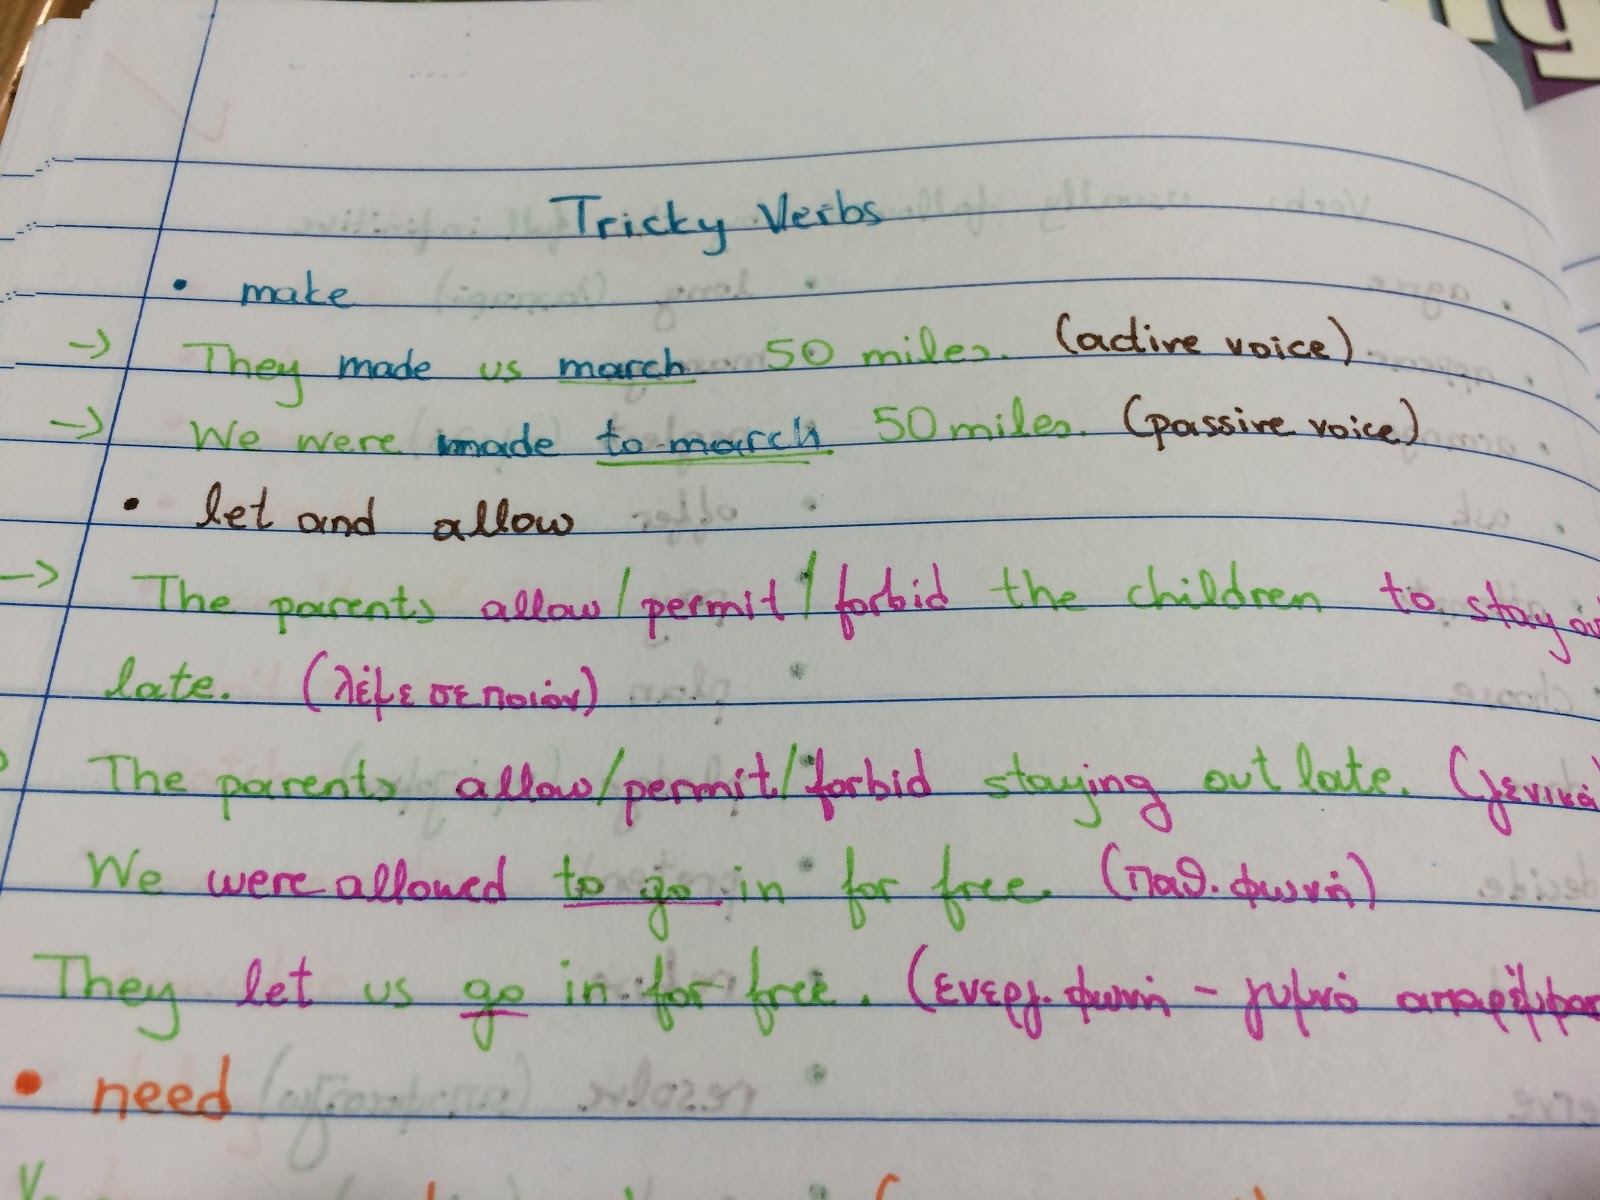 Tricky Verbs
• make
→ They made us march 50 miles. (active voice)
→ We were made to march 50 miles. (passive voice)
• let and allow
→ The parents allow/permit/forbid the children to stay
late. (λέμε σε ποιόν)
The parents allow/permit/forbid staying out late. (γενικά
We were allowed to go in for free. (παθ. φωνή)
They let us go in for free. (ενεργ. φωνή - γυμνό
• need